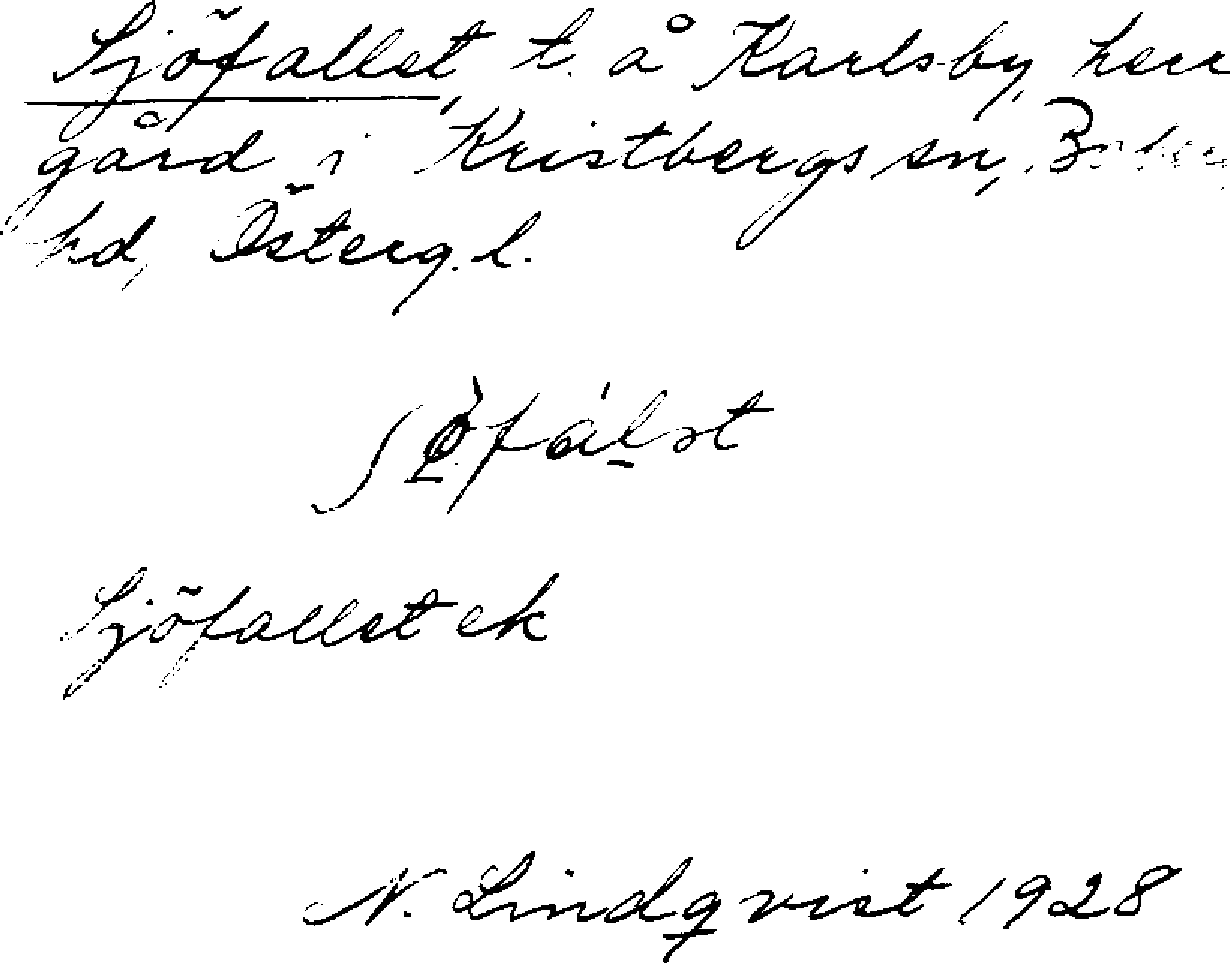 Sjöfallet, t. å Karlsby, herr
gård i Kristbergs sn,
hd, Österg.l.
Sjöfallet ek
N. Lindqvist 1928